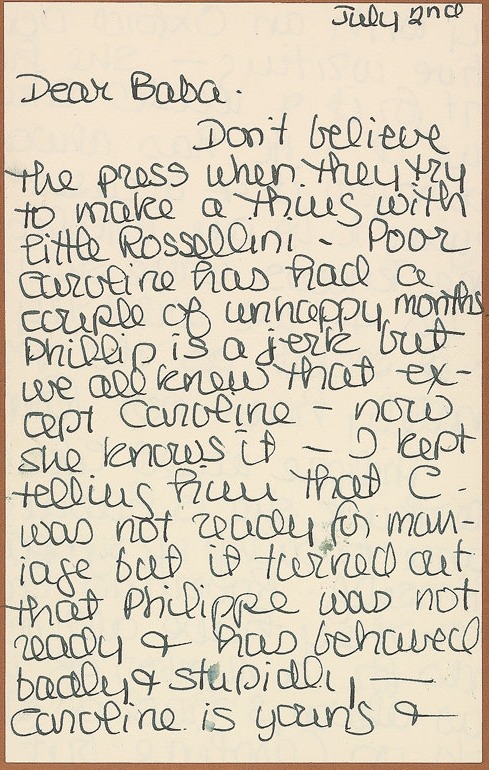 July 2nd
Dear Baba.
Don't believe
the press when they try
to make a thing with
little Rossellini - Poor
Caroline has had a
couple of unhappy months
Phillip is a jerk but
we all knew that ex-
cept Caroline - now
she knows it - I kept
telling him that C.
was not ready for marr-
iage but it turned out
that Philippe was not
ready & has behaved
badly & stupidly —
Caroline is young &